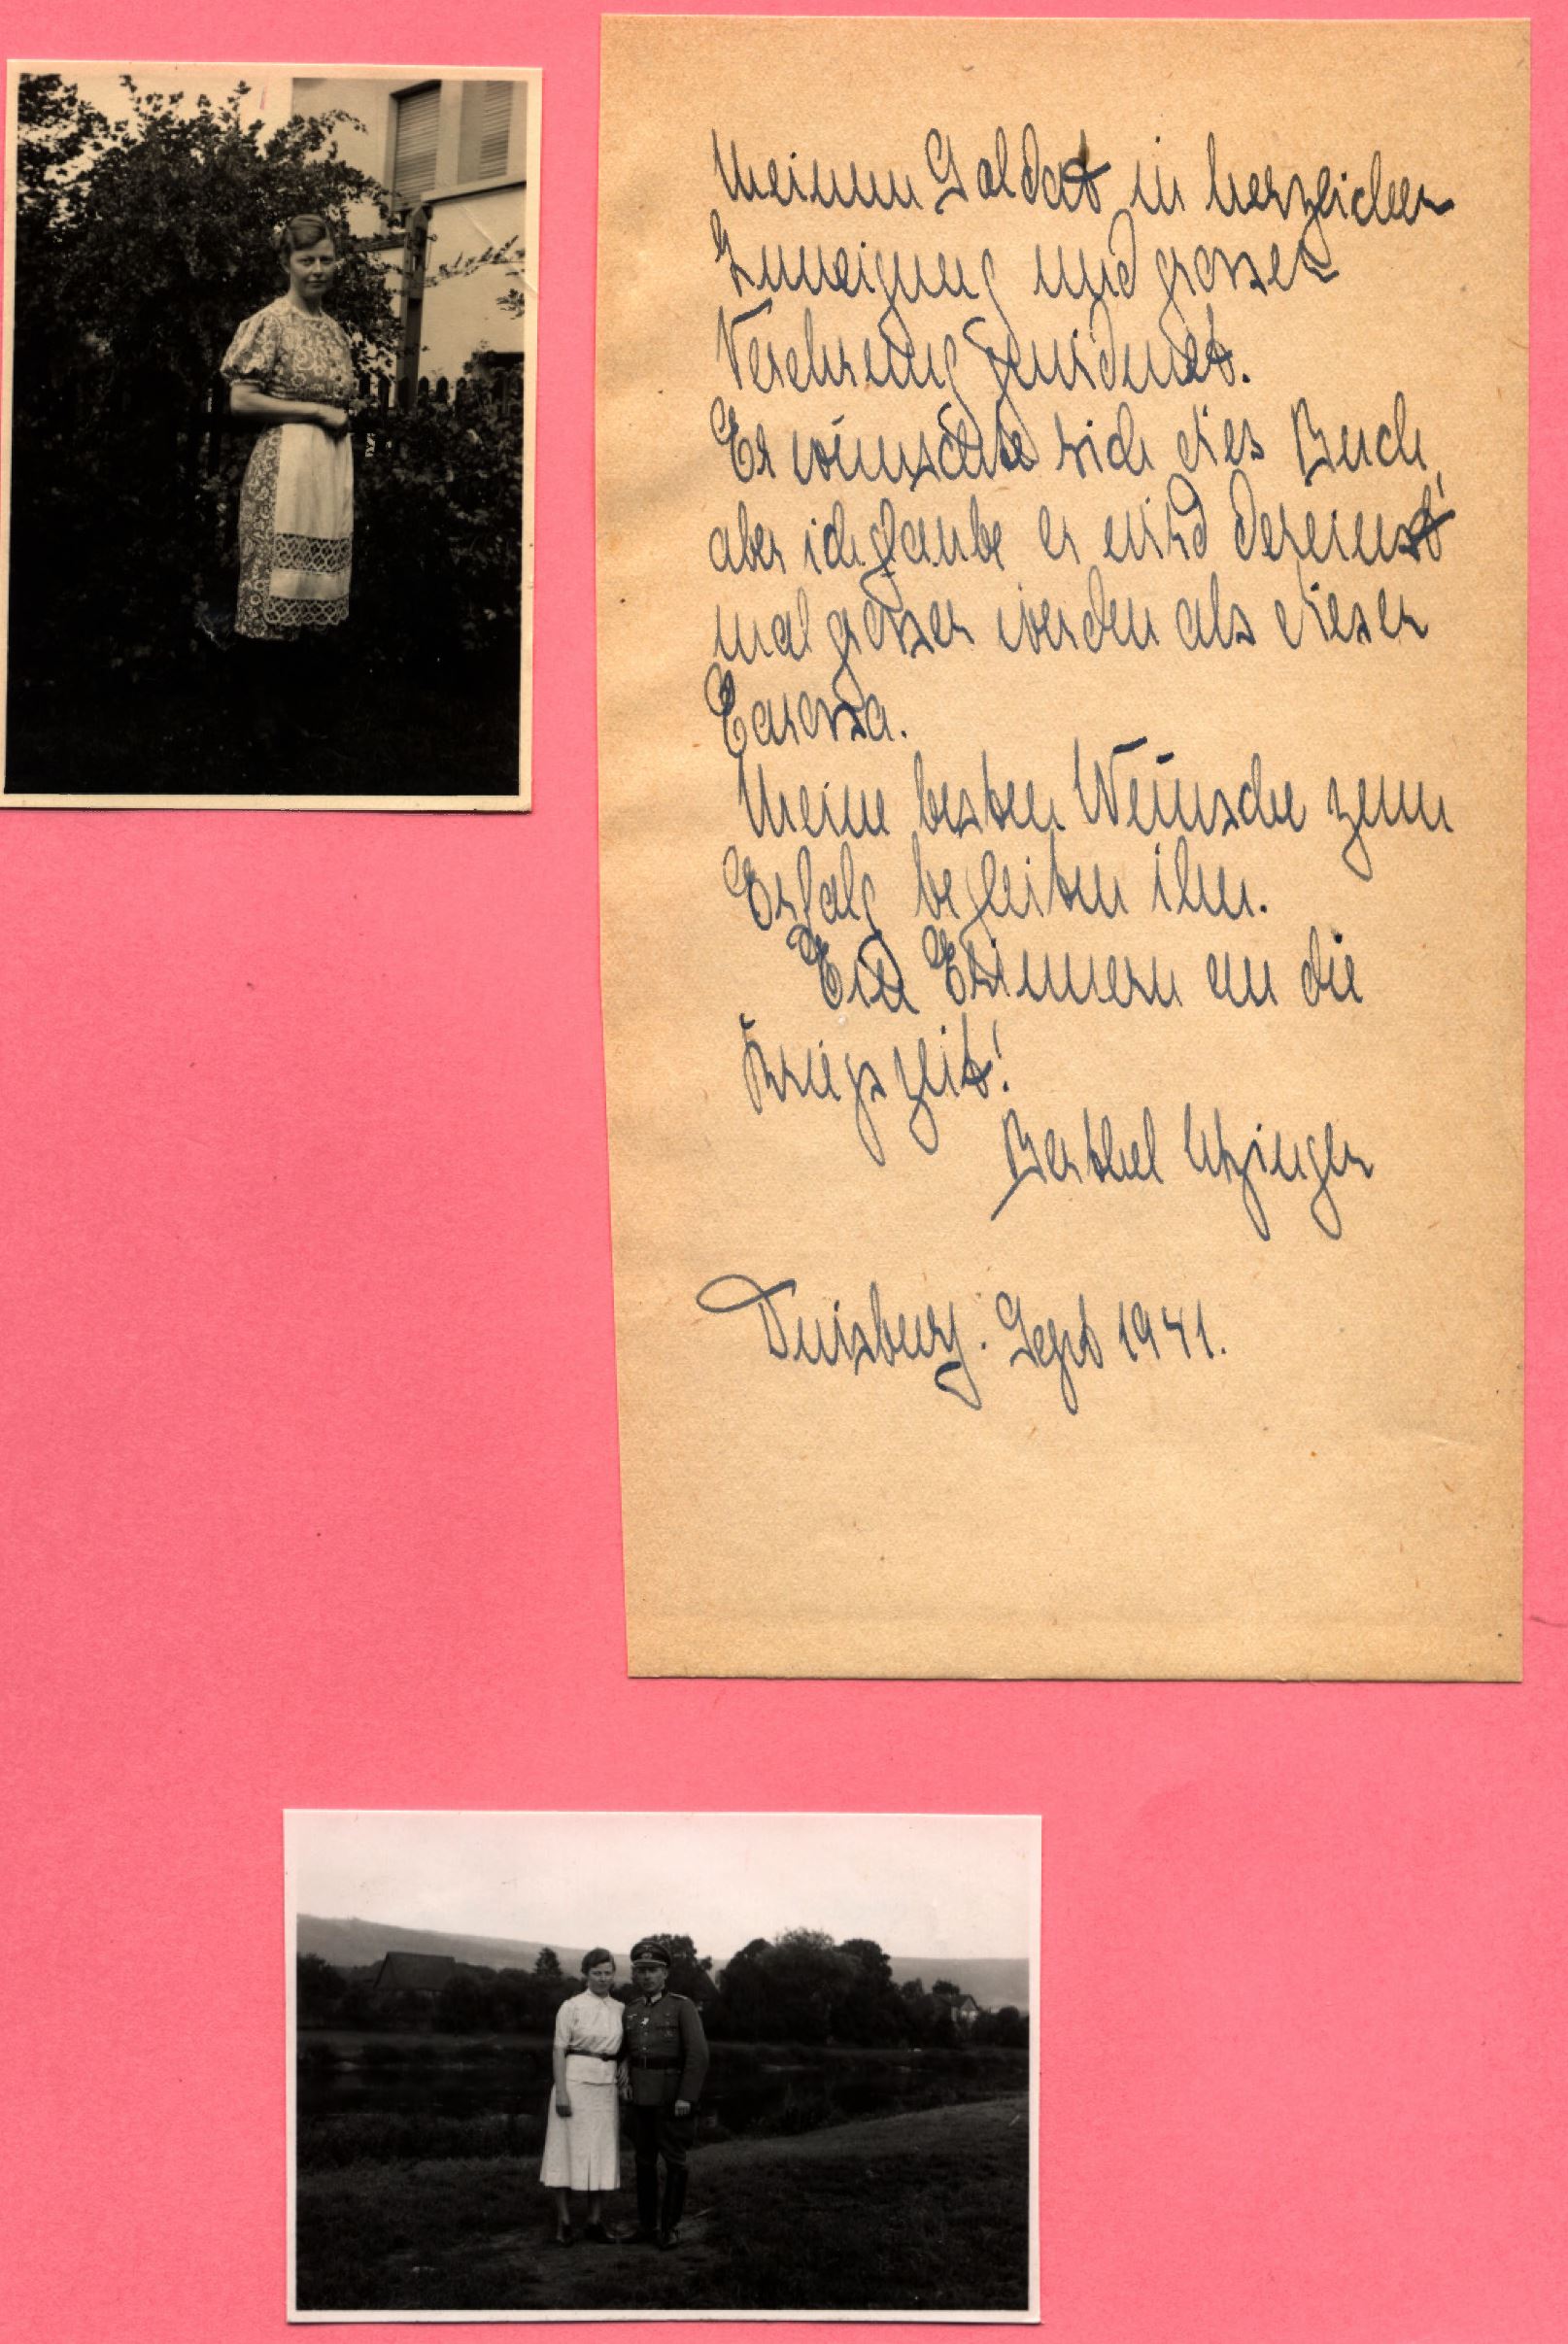 Meinem Soldat in herzlicher
Zuneigung und grosser
Verehrung gewidmet.
Er wünschte sich dies Buch,
aber ich glaube er wird dereinst
mal grösser werden als dieser
Carossa.
Meine besten Wünsche zum
Erfolg begleiten ihn.
Ein Erinnern an die
Kriegszeit!
Berthel Utzinger
Duisburg. Sept 1941.